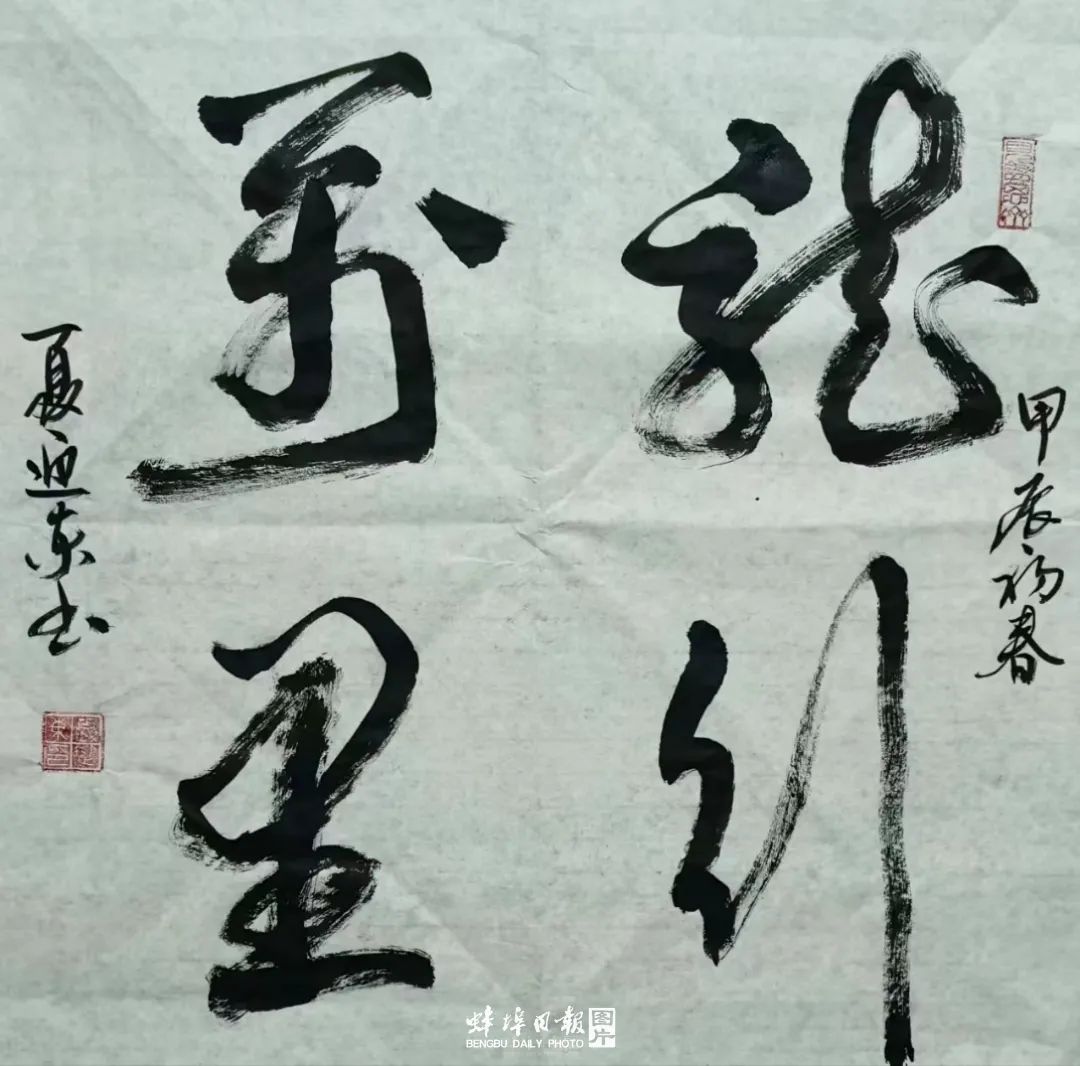 甲辰初春
龍行
萬里
夏迎东书
蚌埠日報 图片
BENGBU DAILY PHOTO